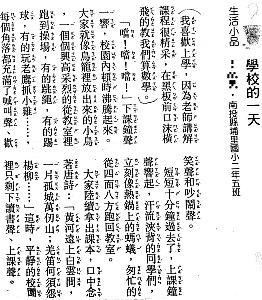 學校的一天
生活小品
南投縣埔里國小二年五班
(我喜歡上學,因為老師講解
課程很精采,在黑板前口沫橫
飛的教我們算數學)
「噹!噹!噹!」下課鐘聲
一響,校園內頓時沸騰起來。
大家就像鳥籠裡放出來的小鳥
,一個個興高采烈的從教室裡
跑到操場,有的跳繩,有的踢
球,有的玩老鷹抓小雞……
每個角落都充滿了喊叫聲、歡
笑聲和吵鬧聲。
短短十分鐘過去了,上課鐘
聲響起,汗流浹背的同學們,
立刻像熱鍋上的螞蟻,匆忙的
從四面八方跑回教室。
大家陸續拿出課本,口中念
著唐詩:「黃河遠上白雲間,
一片孤城萬仞山;羌笛何須怨
楊柳……」這時,平靜的校園
裡只剩下讀書聲、上課聲。